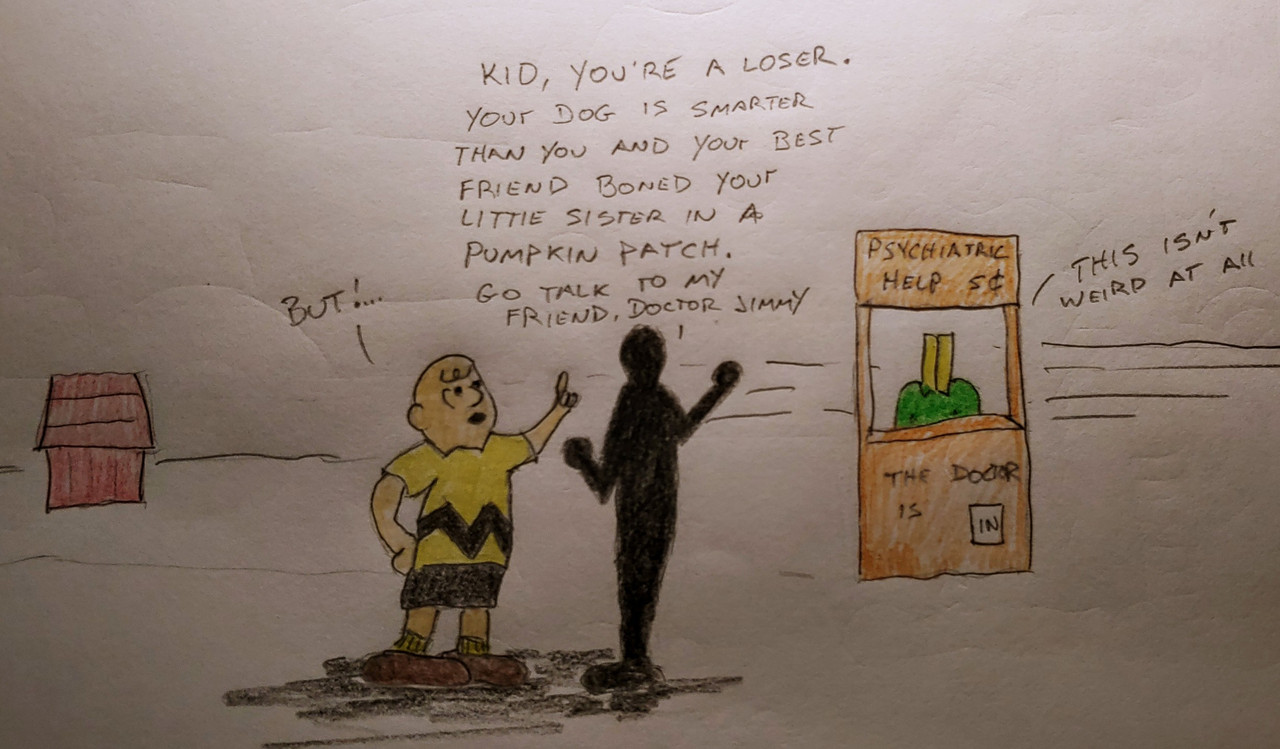 KID, YOU'RE A LOSER.
YOUr DOG IS SMARTER
THAN YOU AND YOUr BEST
FRIEND BONED YOUr
LITTlE SISTER IN A
PUMPKIN PATCH.
GO TALK TO MY
FRIEND, DOCTOR JIMMY
BUT!...
PSYCHIATRIC
HELP 5¢
THIS ISN'T
WEIRD AT All
THE DOCTOR
IS
IN